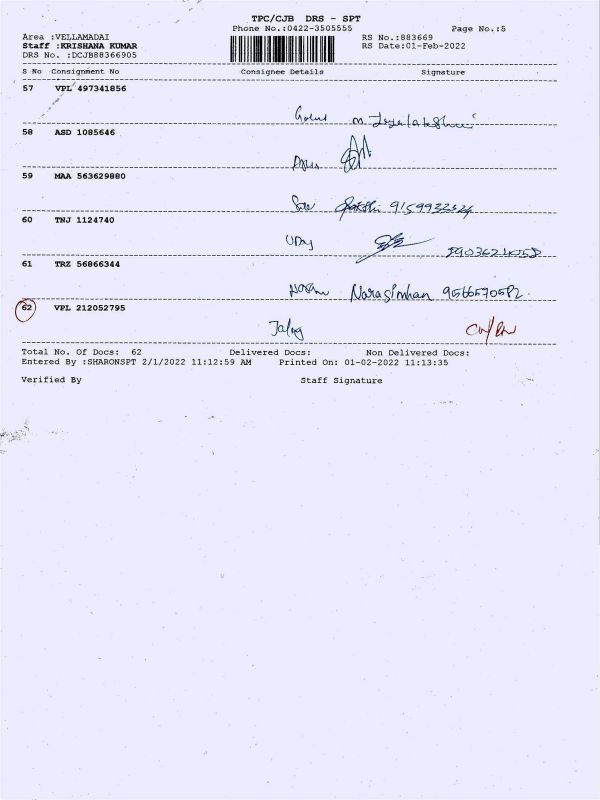 TPC/CJB DRS - SPT
Phone No.:0422-3505555 Page No.:5
Area :VELLAMADAI RS No.:883669
Staff :KRISHANA KUMAR RS Date:01-Feb-2022
DRS No. :DCJB88366905
S No Consignment No Consignee Details Signature
57 VPL 497341856
58 ASD 1085646
59 MAA 563629880
60 TNJ 1124740
UDay
61 TRZ 56866344
Narasimhan 9566570582
62 VPL 212052795
Total No. Of Docs: 62 Delivered Docs: Non Delivered Docs:
Entered By :SHARONSPT 2/1/2022 11:12:59 AM Printed On: 01-02-2022 11:13:35
Verified By Staff Signature